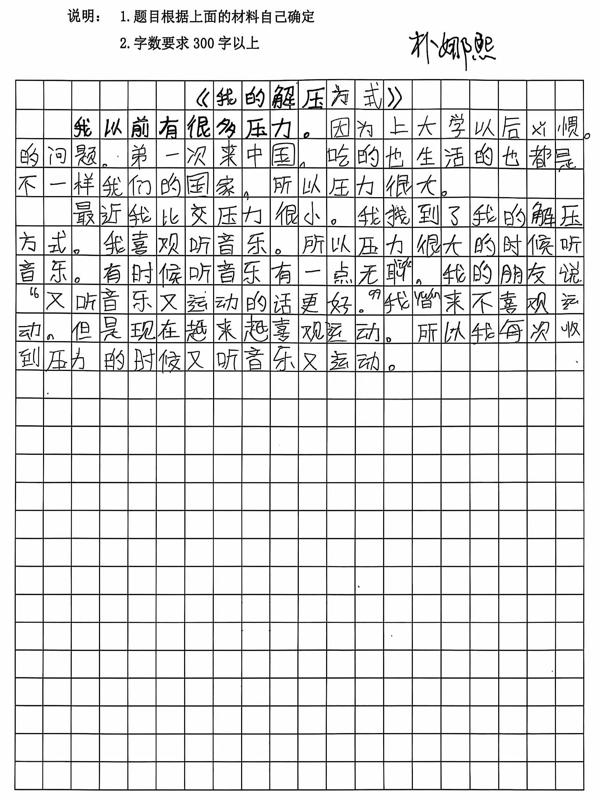 说明： 1.题目根据上面的材料自己确定
2.字数要求300字以上
朴娜熙
《我的解压方式》
我以前有很多压力。因为上大学以后习惯。
的问题。第一次来中国，吃的也生活的也都是
不一样我们的国家，所以压力很大。
最近我比交压力很小。我找到了我的解压
方式。我喜观听音乐。所以压力很大的时候听
音乐。有时候听音乐有一点无聊。我的朋友说
“又听音乐又运动的话更好。”我来不喜观运
动。但是现在越来越喜观运动。所以我每次收
到压力的时候又听音乐又运动。